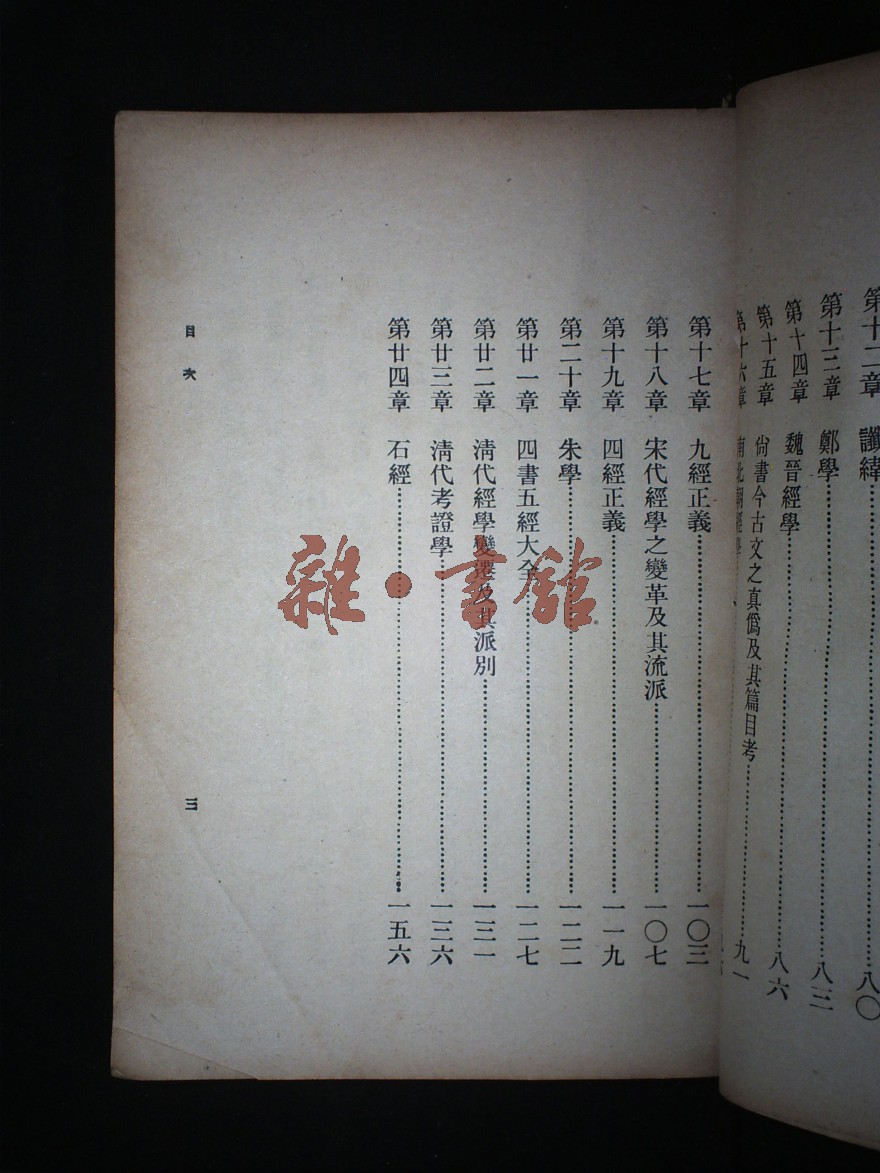 第十二章 讖緯 八〇
第十三章 鄭學 八三
第十四章 魏晉經學 八六
第十五章 尙書今古文之真僞及其篇目考 九一
第十六章 南北朝經學
第十七章 九經正義 一〇三
第十八章 宋代經學之變革及其流派 一〇七
第十九章 四經正義 一一九
第二十章 朱學 一二二
第廿一章 四書五經大全 一二七
第廿二章 淸代經學變遷及其派別 一三一
第廿三章 淸代考證學 一三六
第廿四章 石經 一五六
目次
三
雜·書館